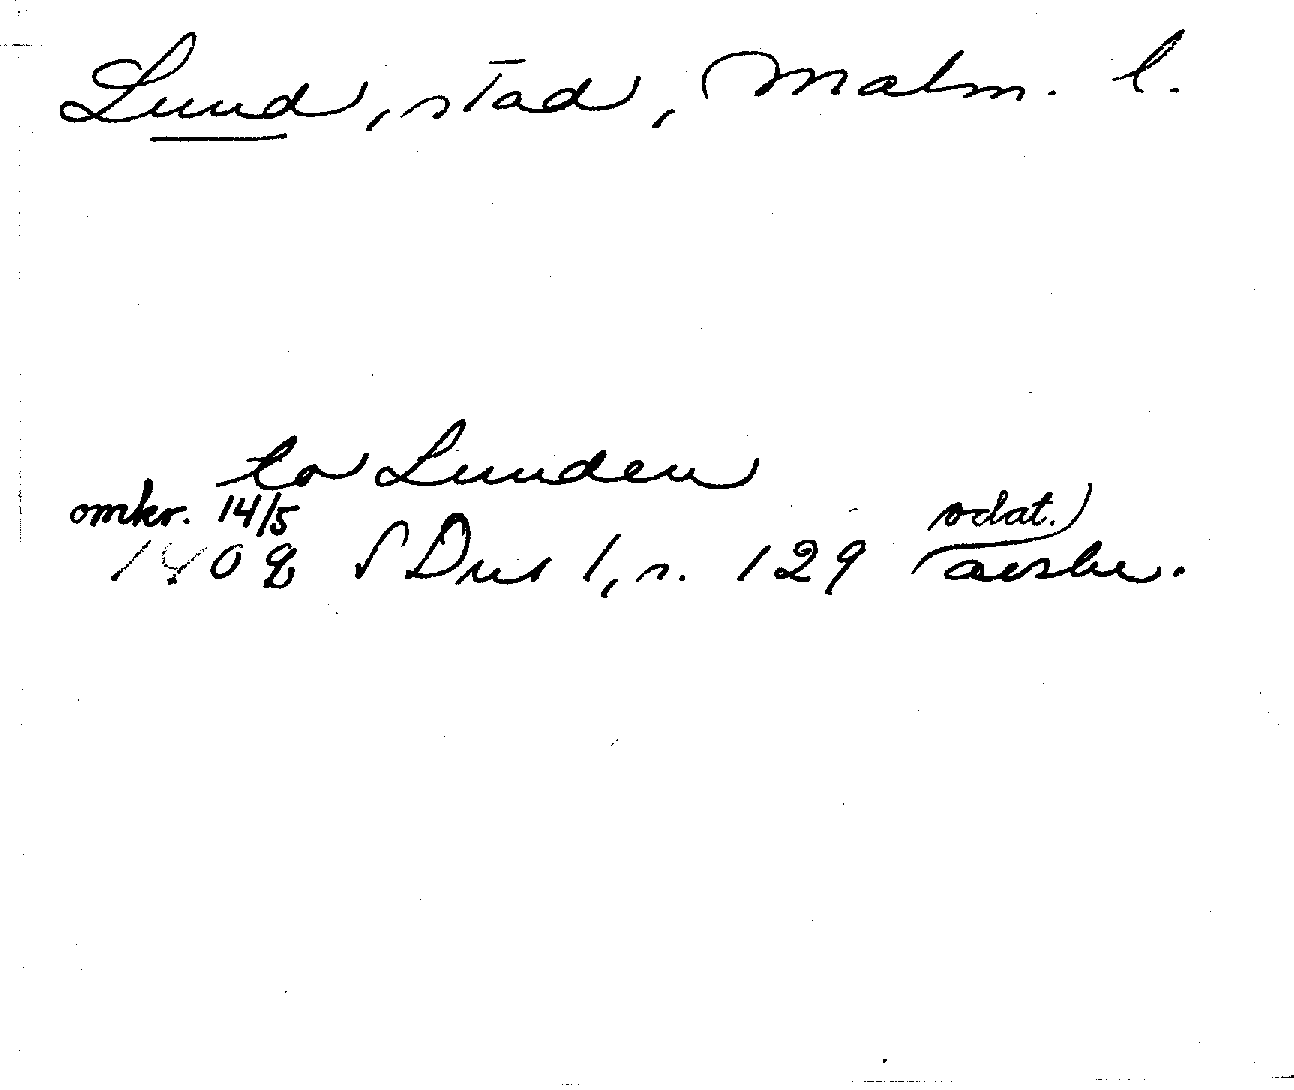 Lund, stad, Malm. l.
to Lunden
omkr. 14/5
odat.)
1402 SDns 1, s. 129 avskr.